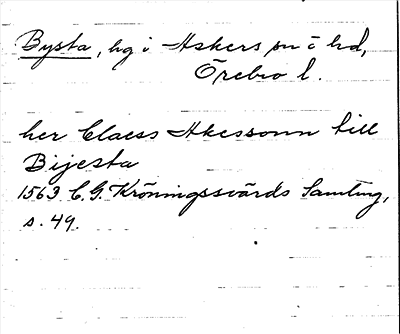 Bysta, hg i Askers sn o hd,
Örebro l.
her Claess Akessonn till
Bijesta
1563 C.G. Kröningssvärds Samling,
s. 49.